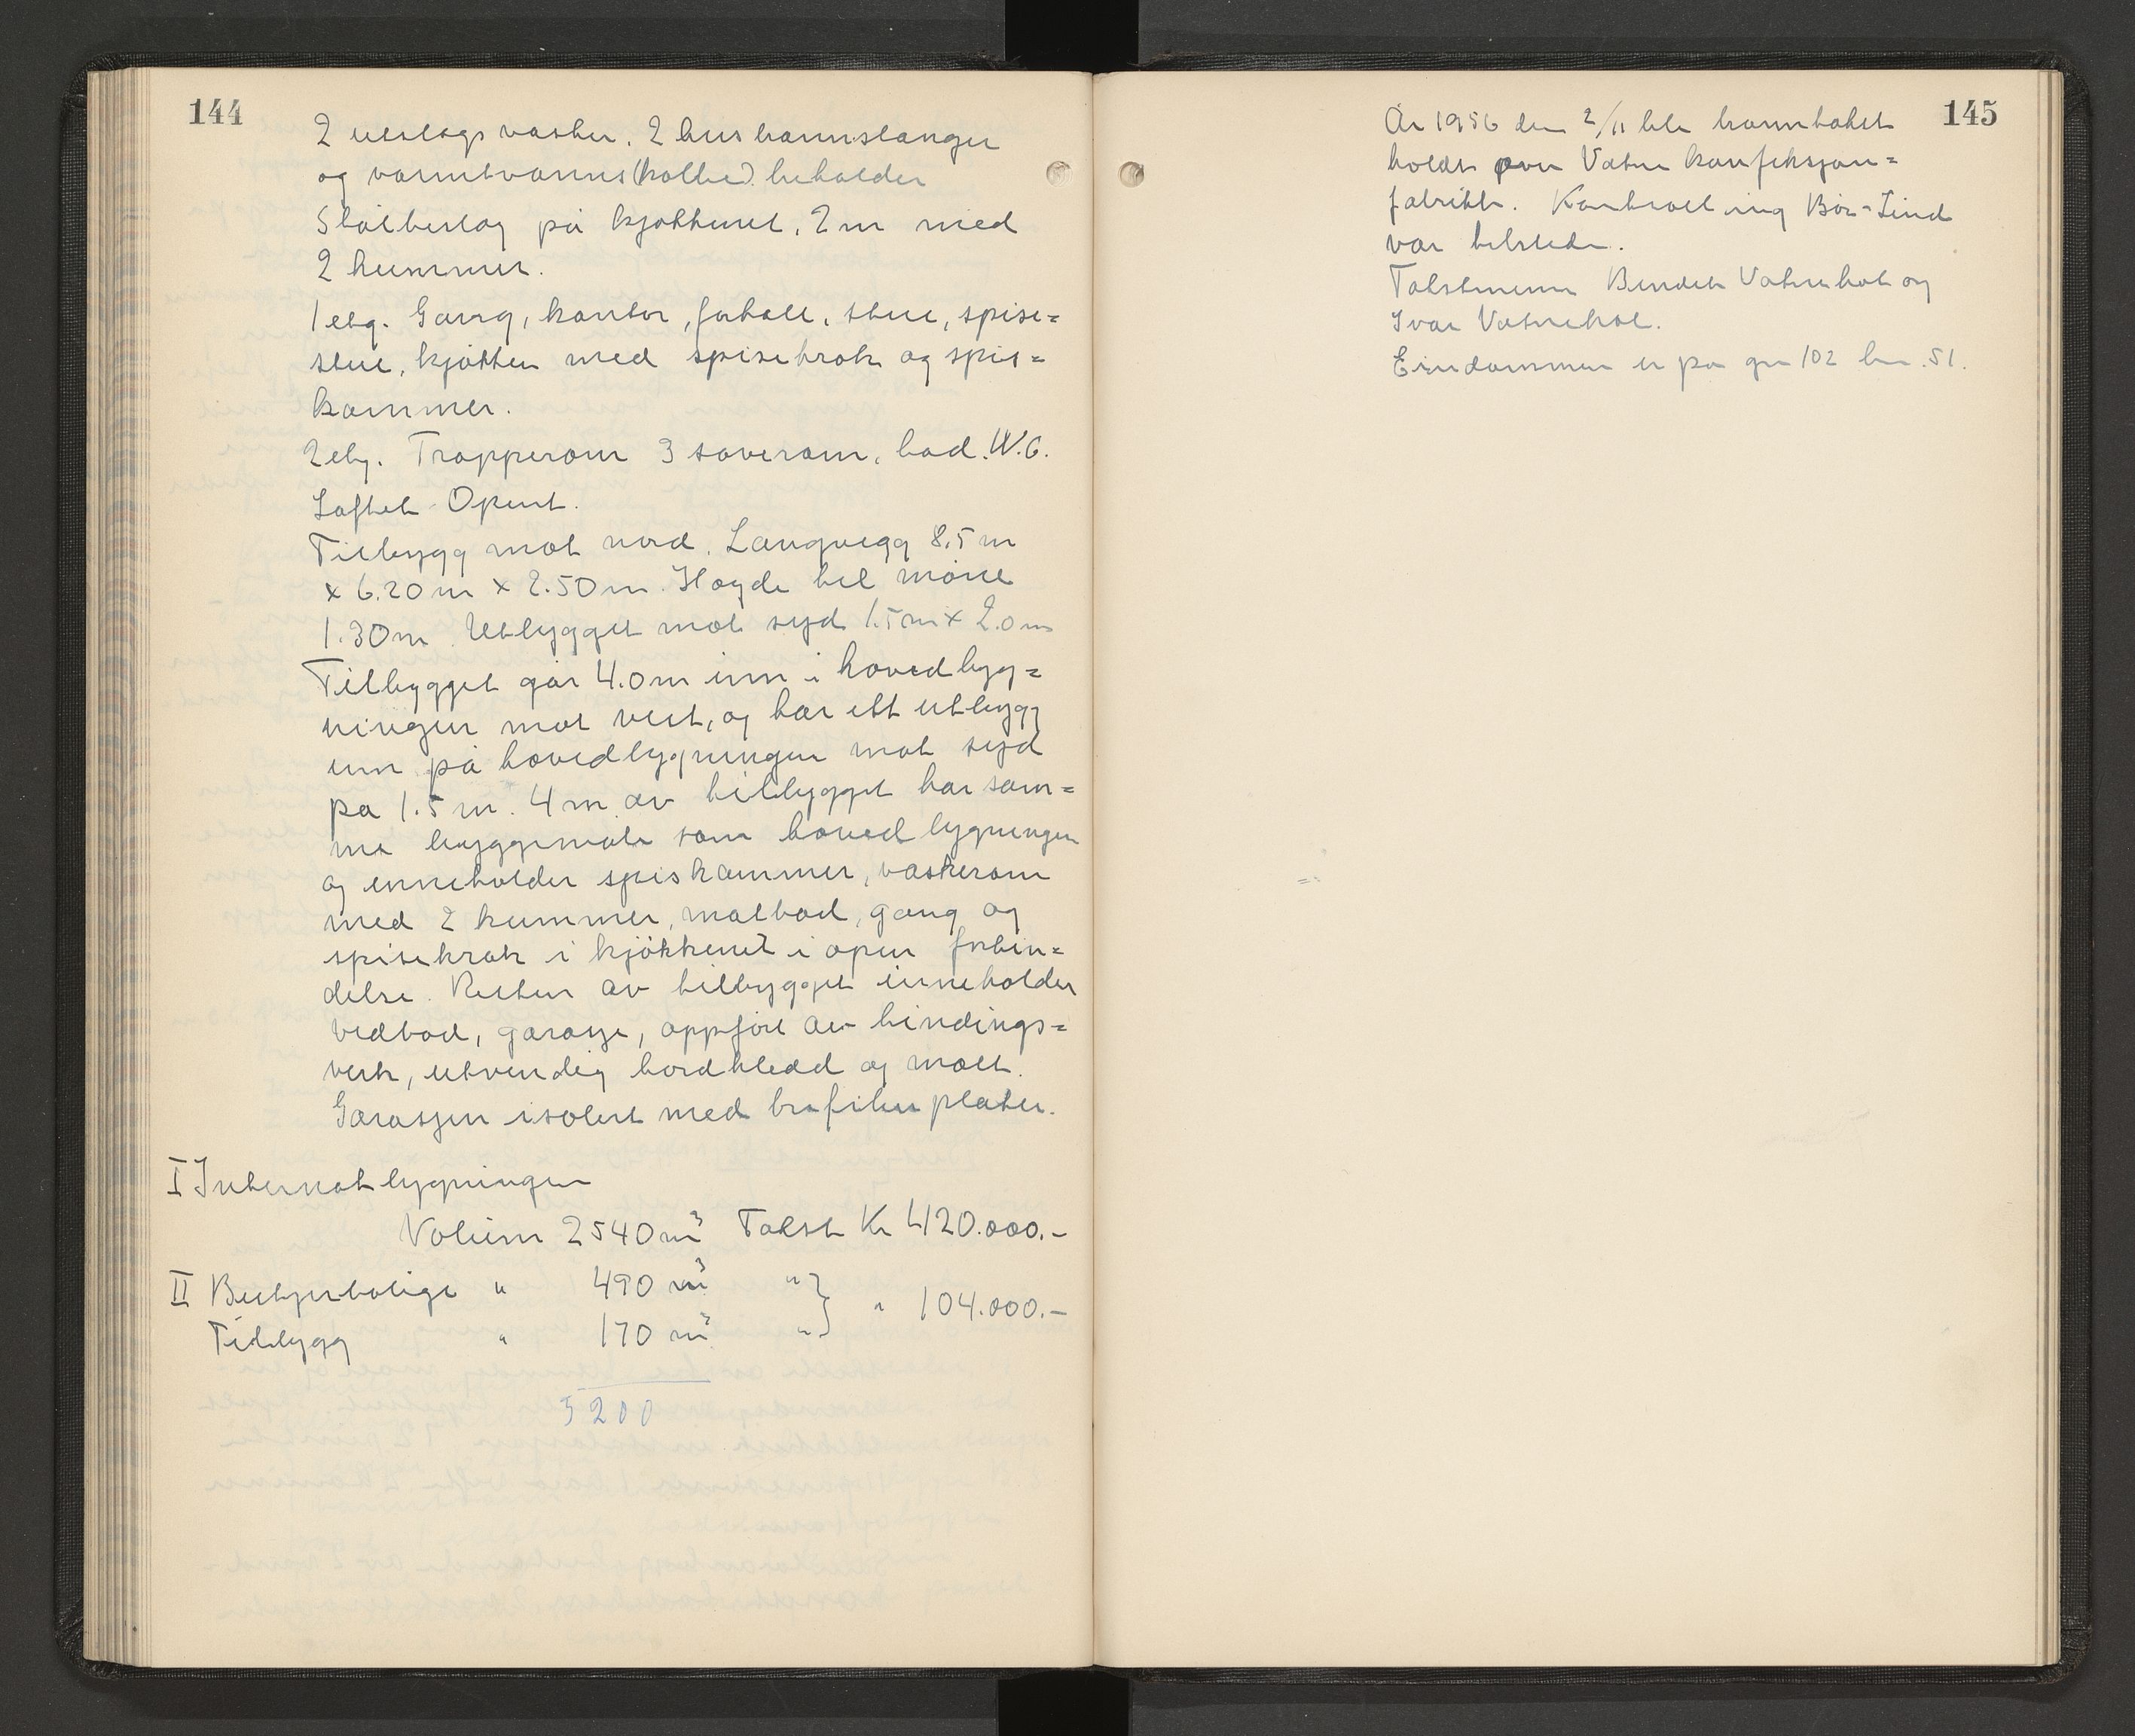 144
2 utslagsvasker. 2 hus vannslanger
og varmtvanns (kolbe) beholder
Stålbeslag på kjøkkenet, 2 m med
2 kummer.
1 etg. Gang, kontor, forhall, stue, spise=
stue, kjøkken med spisekrok og spis=
kammer.
2 etg. Trapperom 3 soverom, bad. W.C.
Loftet Opent.
Tilbygg mot nord. Langvegg 8.5 m
x 6.20 m x 2.50 m. Høgde til møne
1.30 m. Utbygget mot syd 1.5 m x 2.0 m
Tilbygget går 4.0 m inn i hovedbyg=
ningen mot vest, og har ett utbygg
inn på hovedbygningen mot syd
på 1.5 m. 4 m av tilbygget har sam=
me byggemåte som hovedbygningen
og inneholder spiskammer, vaskerom
med 2 kummer, matbod, gang og
spisekrok i kjökkenet i open forbin=
delse. Resten av tilbygget inneholder
vedbod, garasje, oppført av bindings=
verk, utvendig bordkledd og malt.
Garasjen isolert med trefiberplater.
I Internatbygningen
Volum 2540 m³ Takst Kr 420.000.-
II Bestyrerbolige " 490 m³ " } " 104.000.-
Tilbygg " 170 m³ "
3200
145
År 1956 den 2/11 ble branntakst
holdt over Vatne konfeksjon=
fabrikk. Kontroll ing Bör-Lind
var tilstede.
Takstmenn Bendik Vatnehol og
Ivar Vatnehol.
Eiendommen er på gnr 102 bnr. 51.